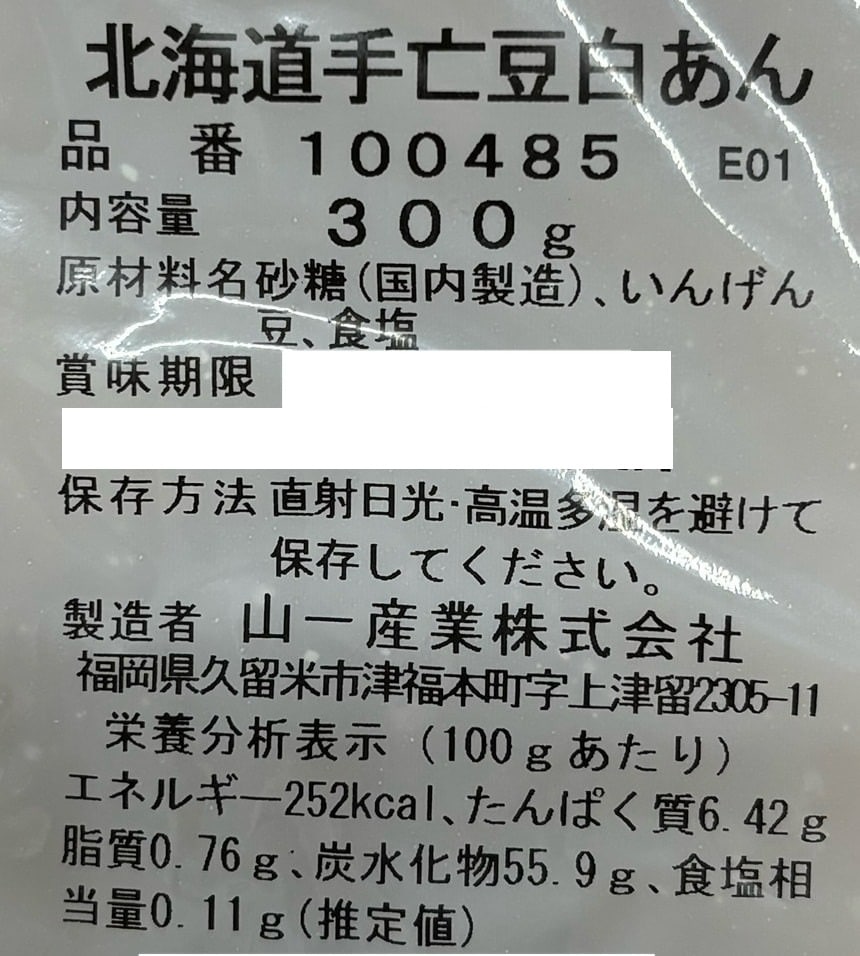 北海道手亡豆白あん
品番 100485 E01
内容量 300g
原材料名 砂糖(国内製造)、いんげん
豆、食塩
賞味期限
保存方法 直射日光・高温多湿を避けて
保存してください。
製造者 山一産業株式会社
福岡県久留米市津福本町字上津留2305-11
栄養分析表示(100gあたり)
エネルギー252kcal、たんぱく質6.42g
脂質0.76g、炭水化物55.9g、食塩相
当量0.11g(推定値)